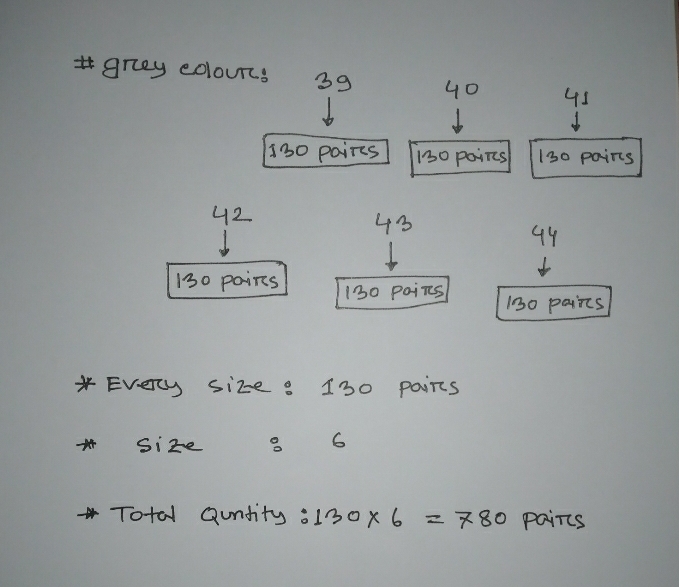 # grey colour:
39 40 41
130 pairs 130 pairs 130 pairs
42 43 44
130 pairs 130 pairs 130 pairs
* Every size : 130 pairs
* size : 6
* Total Quntity : 130 x 6 = 780 pairs